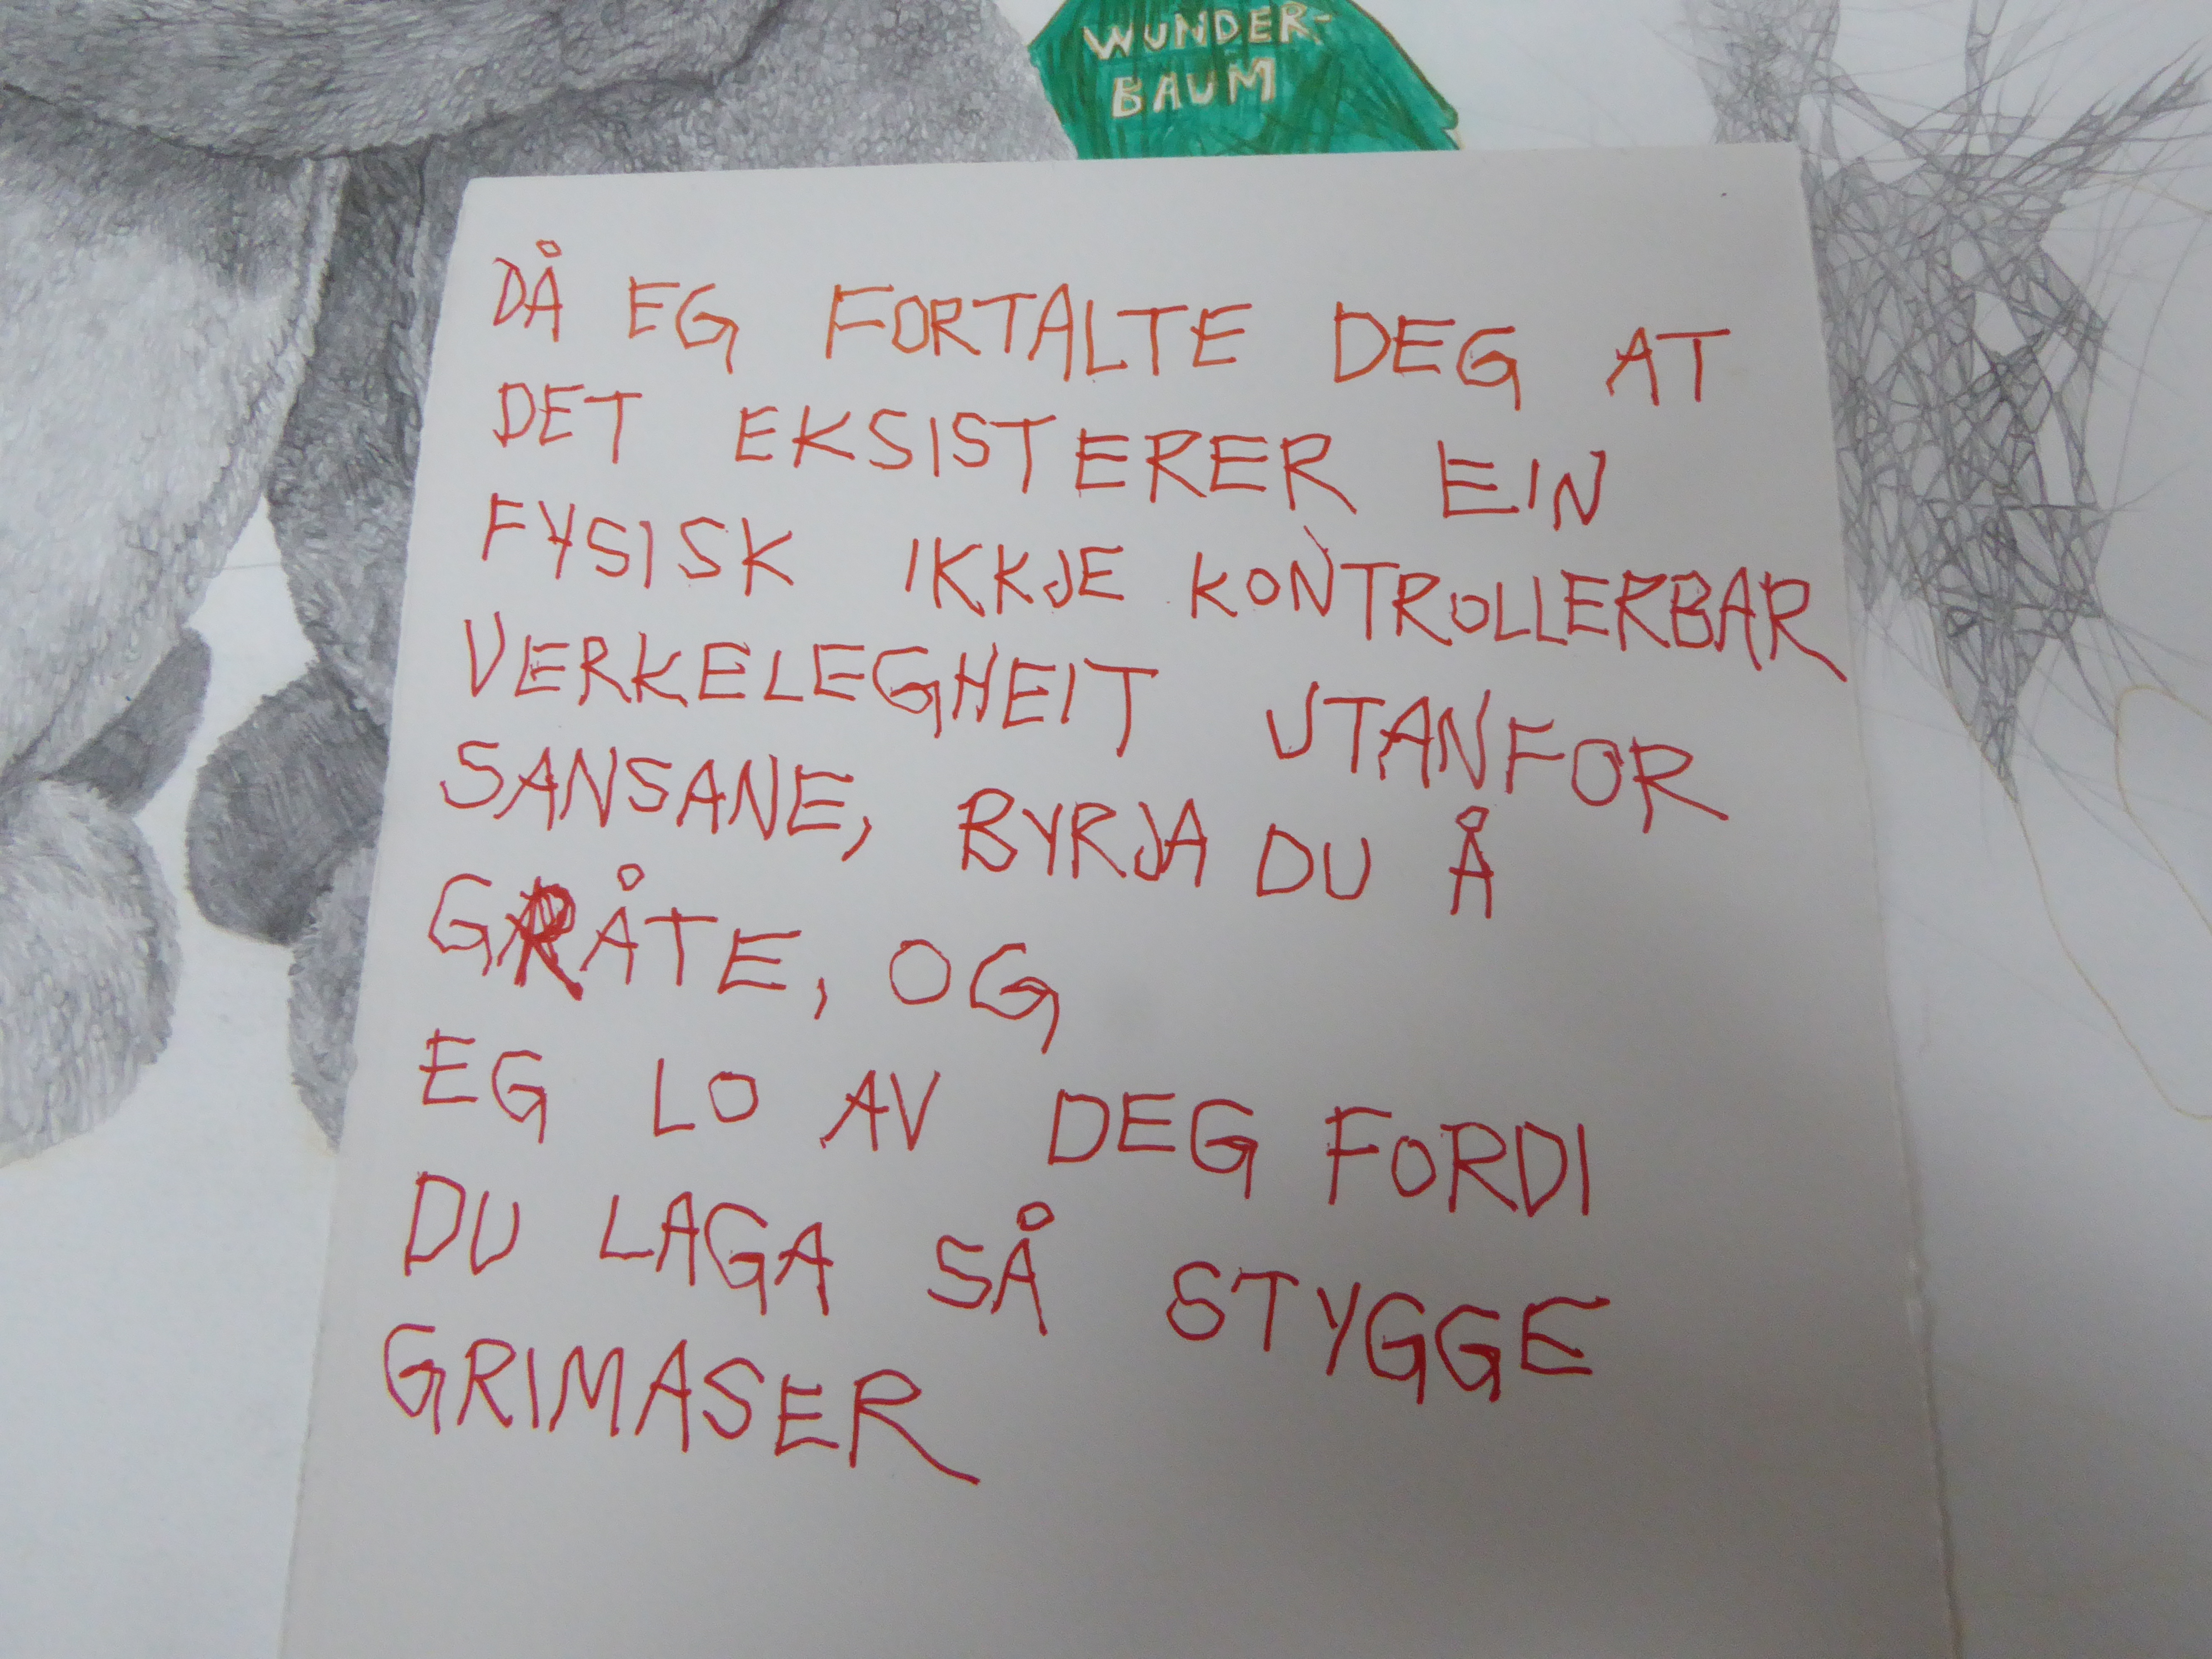 WUNDER-
BAUM
DÅ EG FORTALTE DEG AT
DET EKSISTERER EIN
FYSISK IKKJE KONTROLLERBAR
VERKELEGHEIT UTANFOR
SANSANE, BYRJA DU Å
GRÅTE, OG
EG LO AV DEG FORDI
DU LAGA SÅ STYGGE
GRIMASER